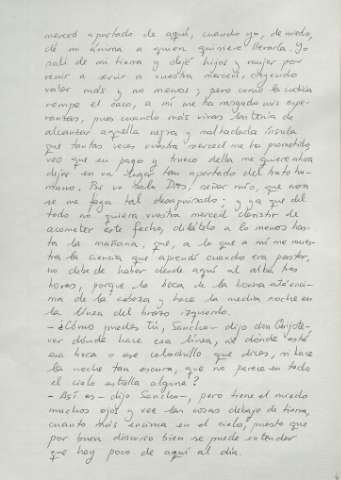 merced apartado de aquí, cuando yo, de miedo,
dé mi ánima a quien quisiere llevarla. Yo
salí de mi tierra y dejé hijos y mujer por
venir a servir a vuestra merced, creyendo
valer más y no menos; pero como la codicia
rompe el saco, a mí me ha rasgado mis espe-
ranzas, pues cuando más vivas las tenía de
alcanzar aquella negra y malhadada ínsula
que tantas veces vuestra merced me ha prometido,
veo que en pago y trueco della me quiere ahora
dejar en un lugar tan apartado del trato hu-
mano. Por un solo Dios, señor mío, que non
se me faga tal desaguisado; y ya que del
todo no quiera vuestra merced desistir de
acometer este fecho, dilátelo a lo menos has-
ta la mañana, que, a lo que a mí me mues-
tra la ciencia que aprendí cuando era pastor,
no debe de haber desde aquí al alba tres
horas, porque la boca de la bocina está enci-
ma de la cabeza y hace la media noche en
la línea del brazo izquierdo.
- ¿Cómo puedes tú, Sancho - dijo don Quijote-
ver dónde hace esa línea, ni dónde está
esa boca o ese colodrillo que dices, si hace
la noche tan oscura, que no parece en todo
el cielo estrella alguna?
- Así es - dijo Sancho-, pero tiene el miedo
muchos ojos y vee las cosas debajo de tierra,
cuanto más encima en el cielo, puesto que
por buen discurso bien se puede entender
que hay poco de aquí al día.